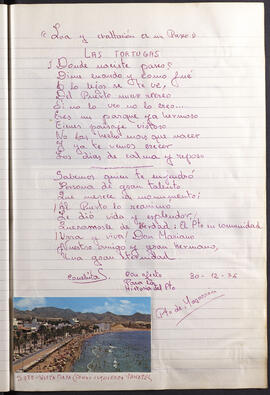 "Loa y exaltación a un Paseo"
LAS TORTUGAS
¿Donde naciste paseo?
Dime cuando y como fué
A lo lejos se te ve,
Del Puerto nuevo recreo
Si no lo veo no lo creo...
Eres un parque ya hermoso
Tienes paisaje vistoso
No has hecho mas que nacer
Y ya te vemos crecer
Los dias de calma y reposo
Sabemos quien te
Persona de gran talento
Que merece un monumento;
¡Al Puerto lo
Le dió vida y esplendor,
de Verdad: El Pto su comunidad
¡Viva y viva! Don Mariano
Nuestro amigo y gran hermano,
Una gran
Conchita S. Con afecto 30-12-
Para la
Historia del Pto.
Pto de Mazarrón
VISTA PLAYA